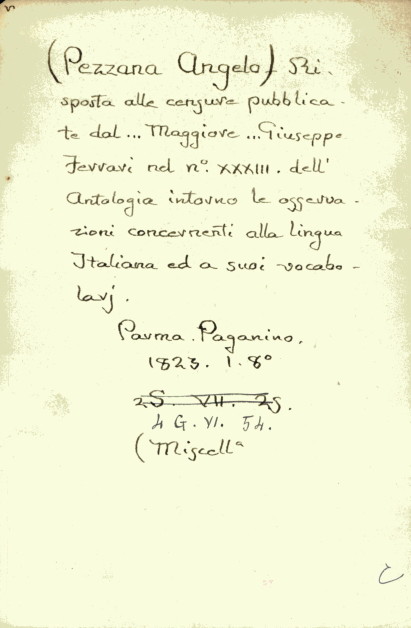 (Pezzana Angelo) Ri-
sposta alle censure pubblica-
te dal ... Maggiore ... Giuseppe
Ferrari nel n.º XXXIII. dell'
Antologia intorno le osserva-
zioni concernenti alla lingua
Italiana ed a suoi vocabo-
larj.
Parma. Paganino.
1823. 1. 8º
2S. VII. 25.
4 G. VI. 54.
(Miscellª